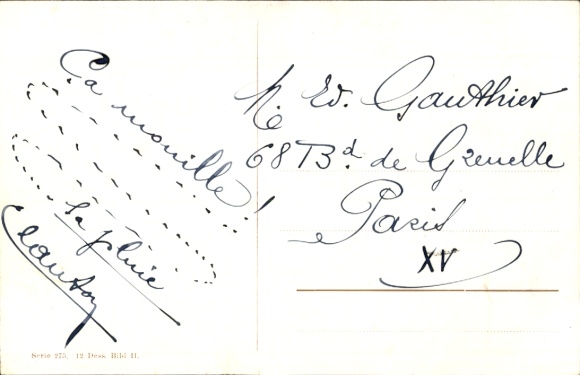 Ça mouille!
la pluie
M. Ed. Gauthier
68 Bd. de Grenelle
Paris
XV
Serie 275. 12 Dess. Bild II.